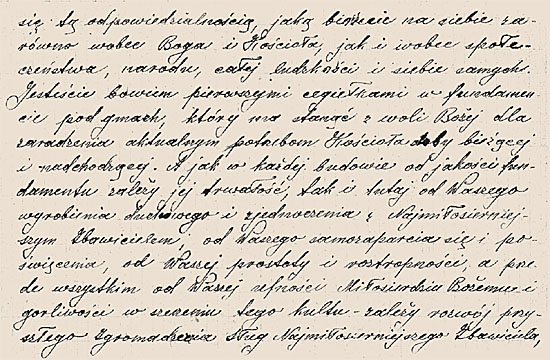 się tą odpowiedzialnością, jaką bierzecie na siebie za-
równo wobec Boga i Kościoła, jak i wobec społe-
czeństwa, narodu, całej ludzkości i siebie samych.
Jesteście bowiem pierwszymi cegiełkami w fundamen-
cie pod gmach, który ma stanąć z woli Bożej dla
zaradzenia aktualnym potrzebom Kościoła doby bieżącej
i nadchodzącej. A jak w każdej budowie od jakości fun-
damentu zależy jej trwałość, tak i tutaj od Waszego
wyrobienia duchowego i zjednoczenia z Najmiłosierniej-
szym Zbawicielem, od Waszego samozaparcia się i po-
święcenia, od Waszej prostoty i roztropności, a prze-
de wszystkim od Waszej ufności Miłosierdziu Bożemu i
gorliwości w szerzeniu tego kultu - zależy rozwój przy-
szłego Zgromadzenia Sług Najmiłosierniejszego Zbawiciela,